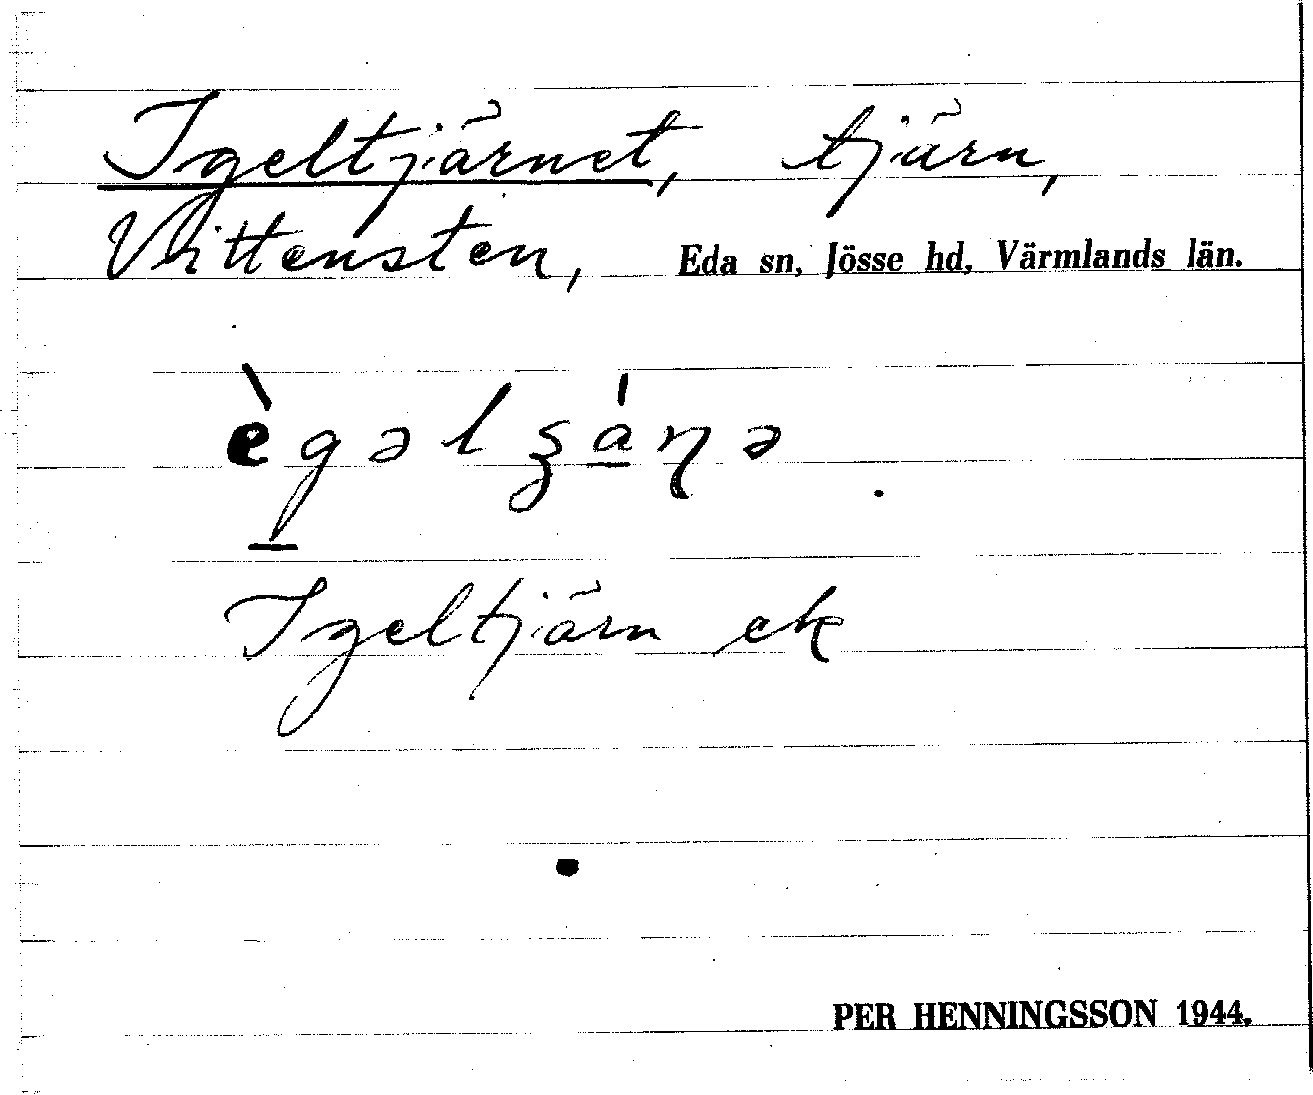 Igeltjärnet, tjärn,
Vittensten, Eda sn, Jösse hd, Värmlands län.
ègəlʒánə.
Igeltjärn ek
PER HENNINGSSON 1944.